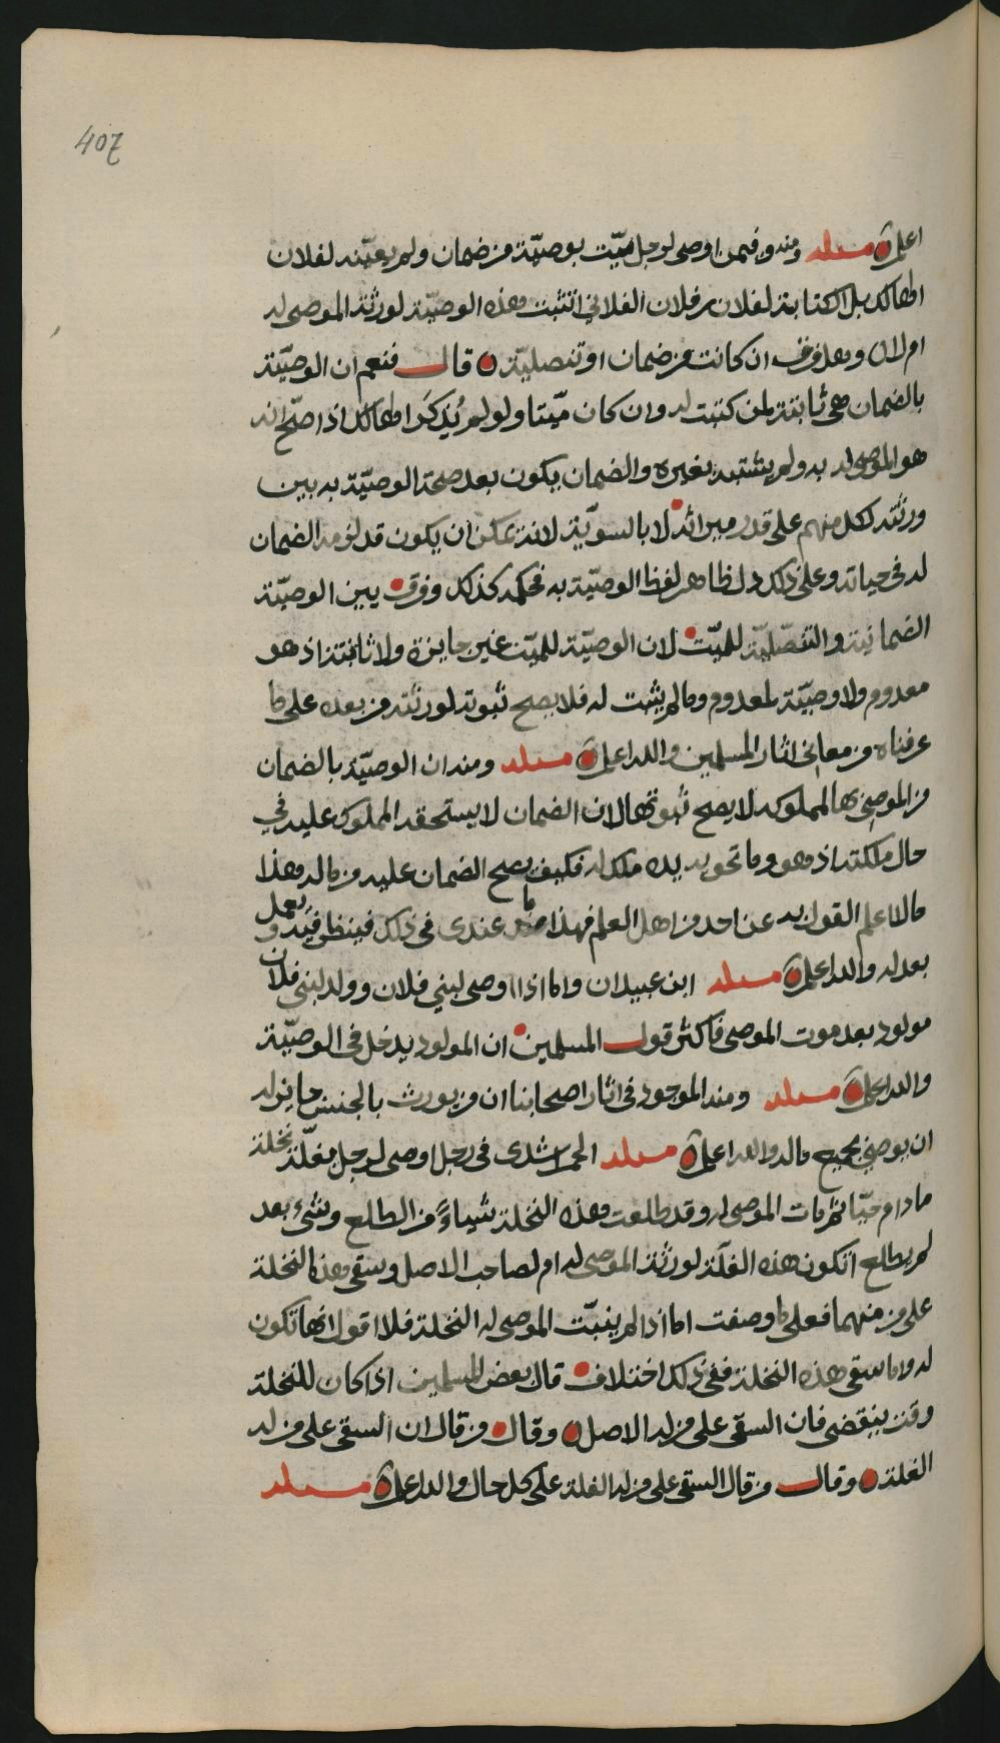 407
اعلم مسئلة ومنه وفيمن اوصى لرجل ميّت بوصيّة من ضمان ولم يعيّنه لفلان
الهالك بل الكتابة لفلان بن فلان الفلاني اتثبت هذه الوصيّة لورثة الموصى له
ام لا وهل فرق ان كانت من ضمان او تنصليّة قال فنعم ان الوصيّة
بالضمان هي ثابتة لمن كتبت له وان كان ميّتا ولو لم يُذكَر الهالك اذا صحّ انه
هو الموصى له به ولم يشتبه بغيره والضمان يكون بعد صحة الوصيّة به بين
ورثته لكل منهم على قدر ميراثه لا بالسويّة لانه يمكن ان يكون قد لزمه الضمان
له في حياته وعلى ذلك دل ظاهر لفظ الوصيّة به فحكمه كذلك وفرق بين الوصيّة
الضمانية والتنصّليّة للميّت لان الوصيّة للميّت غير جايزة ولا ثابتة اذ هو
معدوم ولا وصيّة لمعدوم وما لم يثبت له فلا يصح ثبوته لورثته من بعده على ما
عرفناه من معاني اثار المسلمين والله اعلم مسئلة ومنه ان الوصيّة بالضمان
من الموصي بها لمملوكه لا يصح ثبوتها لان الضمان لا يستحقه المملوك عليه في
حال ملكته اذ هو وما تحويه يده ملك له فكيف يصح الضمان عليه من ماله وهذا
ما لا اعلم القول به عن احد من اهل العلم فهذا ما عندى في ذلك فينظر فيه ويعمل
بعدله والله اعلم مسئلة ابن عبيدان واما اذا اوصى لبني فلان وولد لبني فلان
مولود بعد موت الموصي فاكثر قول المسلمين ان المولود يدخل في الوصيّة
والله اعلم مسئلة ومنه الموجود في اثار اصحابنا ان من يورث بالجنس جايز له
ان يوصي بجميع ماله والله اعلم مسئلة الحمراشدى في رجل اوصى لرجل بغلّة نخلة
ما دام حيّا ثم مات الموصى له وقد طلعت هذه النخلة شياءً من الطلع وشيء بعد
لم يطلع اتكون هذه الغلّة لورثة الموصى له ام لصاحب الاصل وسقي هذه النخلة
على من منهما فعلى ما وصفت اما اذا لم ينبّت الموصى له النخلة فلا اقول انها تكون
له واما سقي هذه النخلة ففي ذلك اختلاف قال بعض المسلمين اذا كان للنخلة
وقت ينقضي فان السقي على من له الاصل وقال من قال ان السقي على من له
الغلة وقال من قال السقي على من له الغلة على كل حال والله اعلم مسئلة